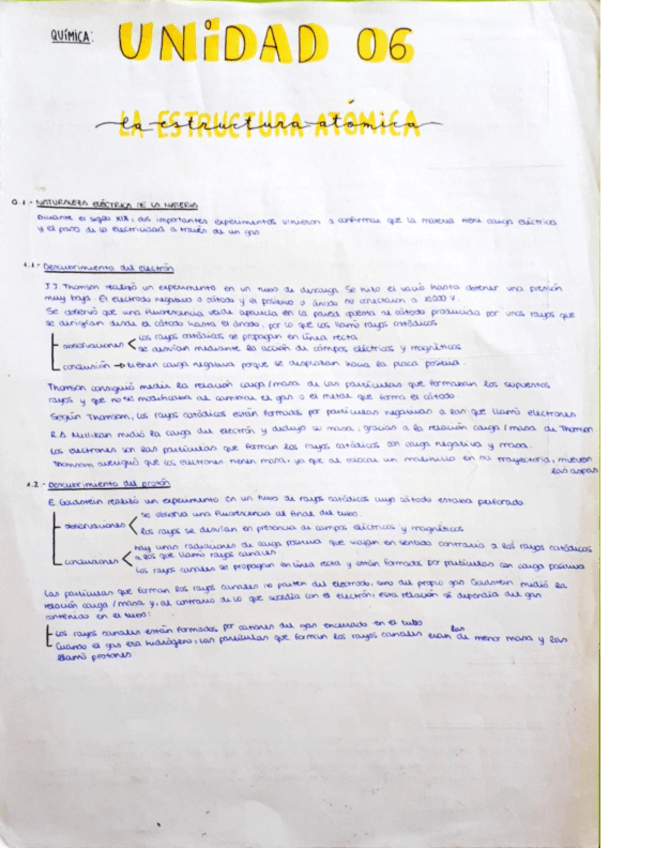 QUÍMICA: UNIDAD 06
LA ESTRUCTURA ATÓMICA
0.1- NATURALEZA ELÉCTRICA DE LA MATERIA
Durante el siglo XIX, dos importantes experimentos vinieron a confirmar que la materia tiene carga eléctrica
y el paso de la electricidad a través de un gas
1.1- Descubrimiento del electrón
J.J. Thomson realizó un experimento en un tubo de descarga. Se hizo el vacío hasta obtener una presión
muy baja. El electrodo negativo o cátodo y el positivo o ánodo se conectaron a 10000 V.
Se observó que una fluorescencia verde aparecía en la pared opuesta al cátodo producida por unos rayos que
se dirigían desde el cátodo hasta el ánodo, por lo que los llamó rayos catódicos
observaciones < Los rayos catódicos se propagan en línea recta
se desvían mediante la acción de campos eléctricos y magnéticos
conclusión → tienen carga negativa porque se desplazan hacia la placa positiva
Thomson consiguió medir la relación carga/masa de las partículas que formaban los supuestos
rayos y que no se modificaba al cambiar el gas o el metal que forma el cátodo
Según Thomson, los rayos catódicos están formados por partículas negativas a las que llamó electrones
R.A. Millikan midió la carga del electrón y dedujo su masa, gracias a la relación carga/masa de Thomson
Los electrones son las partículas que forman los rayos catódicos con carga negativa y masa.
Thomson averiguó que los electrones tienen masa, ya que al colocar un molinillo en su trayectoria, mueven
las aspas
1.2- Descubrimiento del protón
E. Goldstein realizó un experimento en un tubo de rayos catódicos cuyo cátodo estaba perforado
observaciones < se observa una fluorescencia al final del tubo.
los rayos se desvían en presencia de campos eléctricos y magnéticos
conclusiones < hay unas radiaciones de carga positiva que viajan en sentido contrario a los rayos catódicos
a los que llamó rayos canales
Los rayos canales se propagan en línea recta y están formados por partículas con carga positiva
Las partículas que forman los rayos canales no parten del electrodo, sino del propio gas. Goldstein midió la
relación carga/masa y, al contrario de lo que sucedía con el electrón, esta relación sí dependía del gas
contenido en el tubo:
Los rayos canales están formados por cationes del gas encerrado en el tubo
Cuando el gas era hidrógeno, las partículas que forman los rayos canales eran las de menor masa y las
llamó protones